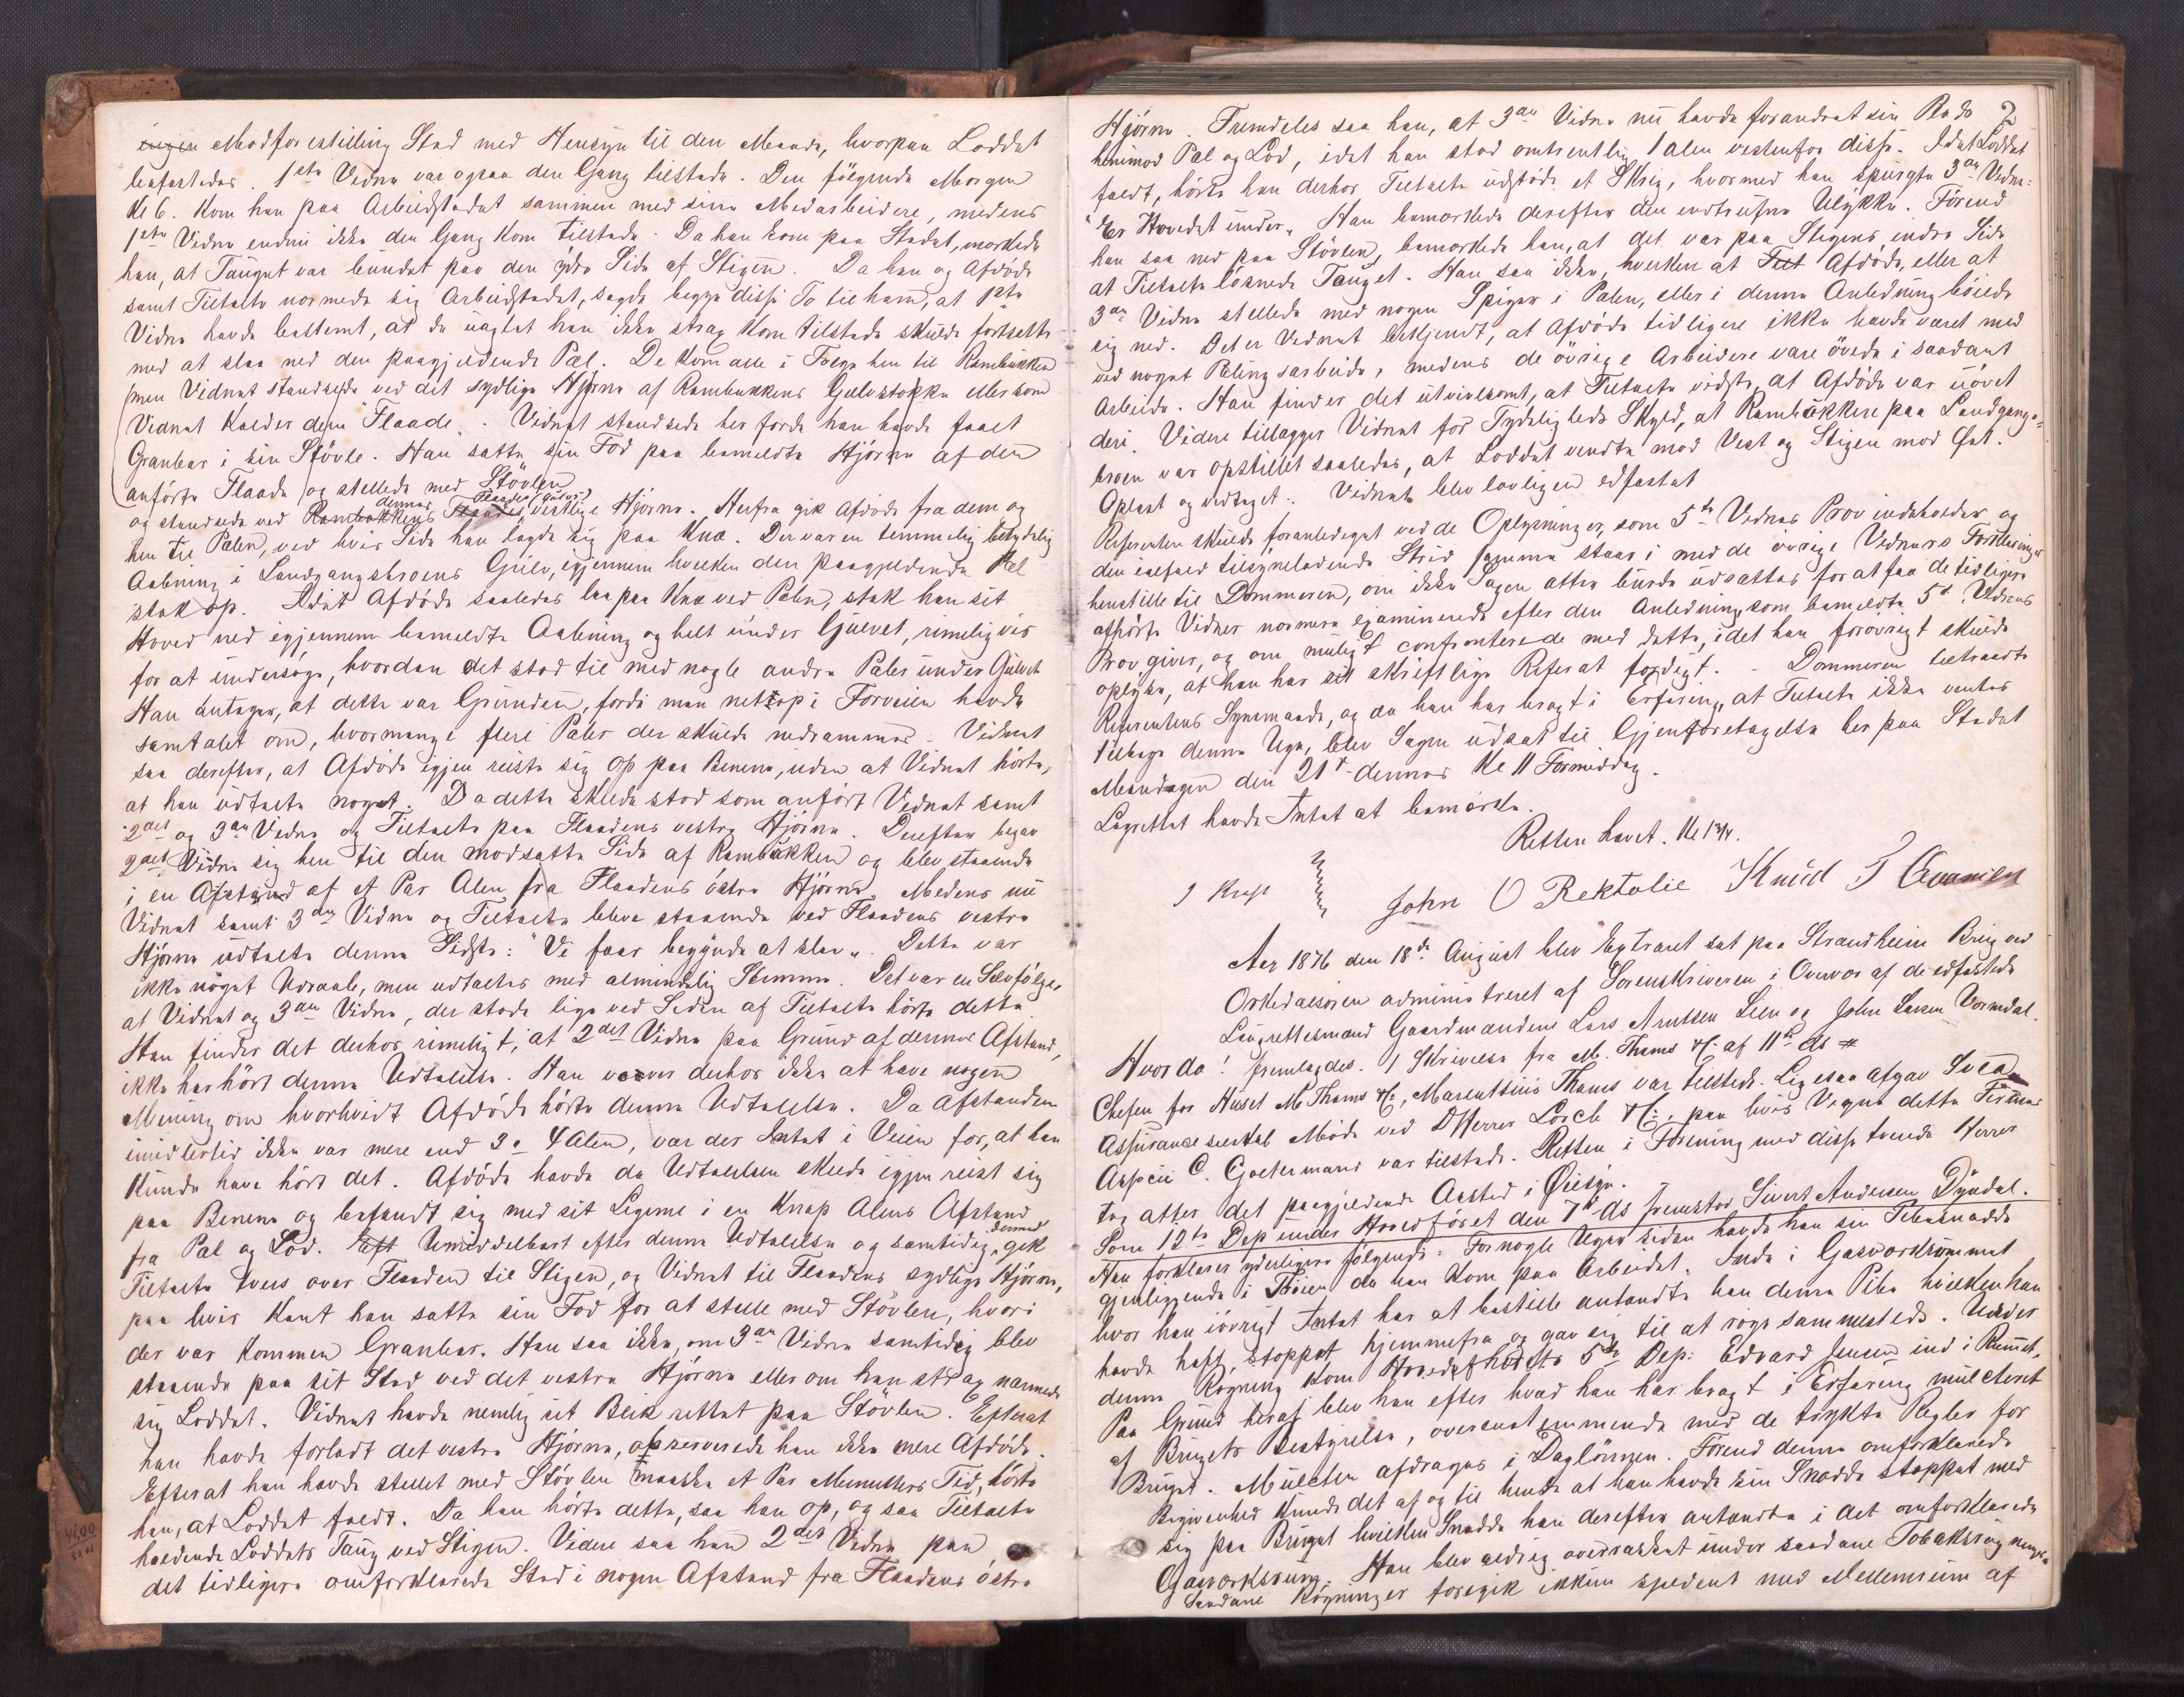 ingen Modforestilling Sted med Hensyn til den Maade, hvorpaa Loddet
befæstedes. 1ste Vidne var ogsaa den Gang tilstede. Den følgende Morgen
Kl 6. kom han paa Arbeidsstedet sammen med sine Medarbeidere, medens
1ste Vidne endnu ikke den Gang kom tilstede. Da han kom paa Stedet, mærkede
han, at Tauget var bundet paa den ydre Side af Stigen. Da han og Afdøde
samt Tiltalte nærmede sig Arbeidsstedet, sagde begge disse To til ham, at 1ste
Vidne havde bestemt, at de uagtet han ikke strax kom tilstede skulde fortsætte
med at slaa ned den paagjældende Pæl. De kom alle i Følge hen til Rambukken
men Vidnet standsede ved det sydlige Hjørne af Rambukkens Gulvstokke eller som
Vidnet kalder dem "Flaade". Vidnet standsede her fordi han havde faaet
Granbar i sin Støvle. Han satte sin Fod paa bemeldte Hjørne af den
anførte Flaade og stellede med Støvlen
og standsede ved Rambukkens dennes Flaades (Gulvs) vestlige Hjørne. Herfra gik Afdøde fra dem og
hen til Pælen, ved hvis Side han lagde sig paa Knæ. Der var en temmelig betydelig
Aabning i Landgangsbroens Gulv, igjennem hvilken den paagjældende Pæl
stak op. Idet Afdøde saaledes laa paa Knæ ved Pælen, stak han sit
Hoved ned igjennem bemeldte Aabning og helt under Gulvet, rimeligvis
for at undersøge, hvordan det stod til med nogle andre Pæler under Gulvet
Han antager, at dette var Grunden, fordi man netop i Forveien havde
samtalet om, hvormange flere Pæler der skulde nedrammes. Vidnet
saa derefter, at Afdøde igjen reiste sig op paa Benene, uden at Vidnet hørte,
at han udtalte noget. Da dette skede stod som anført Vidnet samt
2det og 3die Vidne og Tiltalte paa Flaadens vestre Hjørne. Derefter begav
2det Vidne sig hen til den modsatte Side af Rambukken og blev staaende
i en Afstand af et Par Alen fra Flaadens østre Hjørne. Medens nu
Vidnet samt 3die Vidne og Tiltalte bleve staaende ved Flaadens vestre
Hjørne udtalte denne Sidste: "Vi faar begynde at slaa". Dette var
ikke noget Udraab, men udtaltes med almindelig Stemme. Det var en Selvfølge
at Vidnet og 3die Vidne, der stode lige ved Siden af Tiltalte hørte dette
Han finder det derhos rimeligt, at 2det Vidne paa Grund af dennes Afstand,
ikke har hørt denne Udtalelse. Han vover derhos ikke at have nogen
Mening om hvorvidt Afdøde hørte denne Udtalelse. Da Afstanden
imidlertid ikke var mere end 3 a 4 Alen, var der Intet i Veien for, at han
kunde have hørt det. Afdøde havde da Udtalelsen skede igjen reist sig
paa Benene og befandt sig med sit Legeme i en knap Alens Afstand
fra Pæl og Lod. Eft Umiddelbart efter denne Udtalelse og samtidig dermed gik
Tiltalte tvers over Flaaden til Stigen, og Vidnet til Flaadens sydlige Hjørne,
paa hvis Kant han satte sin Fod for at stelle med Støvlen, hvori
der var kommen Granbar. Han saa ikke, om 3die Vidne samtidig blev
staaende paa sit Sted ved det vestre Hjørne eller om han strax nærmede
sig Loddet. Vidnet havde nemlig sit Blik rettet paa Støvlen. Efterat
han havde forladt det vestre Hjørne, observerede han ikke mere Afdøde.
Efterat han havde stellet med Støvlen maaske et Par Minutters Tid, hørte
han, at Loddet faldt. Da han hørte dette, saa han op, og saa Tiltalte
holdende Loddets Taug ved Stigen. Videre saa han 2det Vidne paa
det tidligere omforklarede Sted i nogen Afstand fra Flaadens østre
2
Hjørne. Fremdeles saa han, at 3die Vidne nu havde forandret sin Plads
henimod Pæl og Lod, idet han stod omtrentlig 1 Alen vestenfor disse. Idet Loddet
faldt, hørte han derhos Tiltalte udstøde et Skrig, hvormed han spurgte 3die Vidne:
"Er Hovedet under". Han bemærkede derefter den indtrufne Ulykke. Førend
han saa ned paa Støvlen, bemærkede han, at det var paa Stigens indre Side
at Tiltalte løsnede Tauget. Han saa ikke, hverken at Tilt Afdøde, eller at
3die Vidne stellede med nogen Spiger i Pælen, eller i denne Anledning bøiede
sig ned. Det er Vidnet bekjendt, at Afdøde tidligere ikke havde været med
ved noget Pælingsarbeide, medens de øvrige Arbeidere vare øvede i saadant
Arbeide. Han finder det utvivlsomt, at Tiltalte vidste, at Afdøde var uøvet
deri. Videre tillægger Vidnet for Tydeligheds Skyld, at Rambukken paa Landgangs-
broen var opstillet saaledes, at Loddet vendte mod Vest og Stigen mod Øst.
Oplæst og vedtaget. Vidnet blev lovligen edfæstet
Referenten skulde foranlediget ved de Oplysninger, som 5te Vidnes Prov indeholder og
den ialfald tilsyneladende Strid samme staar i med de øvrige Vidners Forklaringer
henstille til Dommeren, om ikke Sagen atter burde udsættes for at faa de tidligere
afhørte Vidner nærmere examinerede efter den Anledning, som bemeldte 5te Vidnes
Prov giver, og om muligt confronterede med dette, idet han forøvrigt skulde
oplyse, at han har sit skriftlige Referat færdigt. Dommeren tiltraadte
Referentens Synsmaade, og da han har bragt i Erfaring, at Tiltalte ikke ventes
tilbage denne Uge, blev Sagen udsat til Gjenforetagelse her paa Stedet
Mandagen den 21de dennes Kl 11 Formiddag.
Lagrettet havde Intet at bemærke.
Retten hævet.
John O Rektalie Knud
Aar 1876 den 18de August blev Extraret sat paa Strandheim Brug ved
Orkedalsøren administreret af Sorenskriveren i Overværelse af de edfæstede
Laugrettesmænd Gaardmændene Lars Arntsen Lien og John Larsen Vormdal.
Hvorda! fremlagdes. 1 Skrivelse fra M. Thams & C: af 11te ds
Chefen for Huset M. Thams & C:, Marentius Thams var tilstede. Ligesaa afgav Svea
Assuranceselskab Møde ved DHerrer Lorck & C:, paa hvis Vegne dette Firmas
Associé C. Gjetermann var tilstede. Retten i Forening med disse tvende Herrer
tog atter det paagjældende Aasted i Øiesyn.
Som 12te Dep under Hovedforhøret den 7de ds fremstod Sivert Andersen Dyndal.
Han forklarer yderligere følgende: For nogle Uger siden havde han sin Tobaksnadde
gjenliggende i Trøien da han kom paa Arbeidet. Inde i Gasværksrummet
hvor han iøvrigt Intet har at bestille antændte han denne Pibe hvilken han
havde haft stoppet hjemmefra og gav sig til at røge sammesteds. Under
denne Røgning kom Hovedforhørets 5te Dep: Edvard Jensen ind i Rummet.
Paa Grund heraf blev han efter hvad han har bragt i Erfaring mulcteret
af Brugets Bestyrelse, overensstemmende med de trykte Regler for
Bruget. Mulcten afdrages i Daglønnen. Førend denne omforklarede
Begivenhed kunde det af og til hende at han havde sin Snadde stoppet med
sig paa Bruget hvilken Snadde han derefter antændte i det omforklarede
Gasværksrum. Han blev aldrig overrasket under saadane Tobaksrøgninger
Saadane Røgninger foregik ikkun sjeldent med Mellemrum af